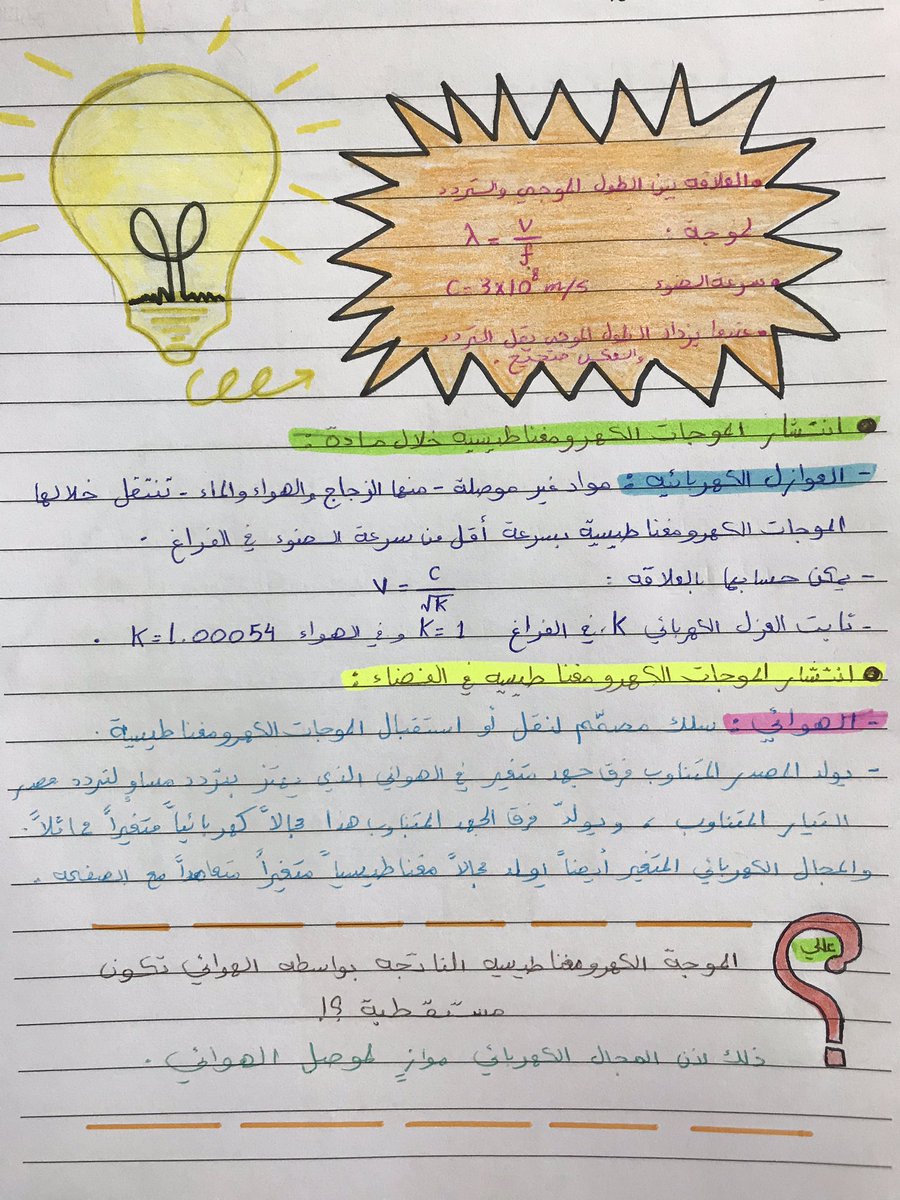 والعلاقه بين الطول الموجي والتردد
لموجة : λ = v/f
وسرعة الضوء C = 3x10⁸ m/s
وعندما يزداد الطول الموجي يقل التردد
والعكس صحيح .
● انتشار الموجات الكهرومغناطيسيه خلال مادة :
- العوازل الكهربائيه : مواد غير موصلة - منها الزجاج والهواء والماء - تنتقل خلالها
الموجات الكهرومغناطيسية بسرعة أقل من سرعة الضوء في الفراغ .
- يمكن حسابها بالعلاقه : v = C/√K
- ثابت العزل الكهربائي K ، في الفراغ K = 1 وفي الهواء K = 1.00054 .
● انتشار الموجات الكهرومغناطيسيه في الفضاء :
- الهوائي : سلك مصمّم لنقل أو استقبال الموجات الكهرومغناطيسية .
- يولد المصدر المتناوب فرق جهد متغير في الهوائي الذي يهتز بتردد مساوٍ لتردد مصدر
التيار المتناوب ، ويولدّ فرق الجهد المتناوب هذا مجالاً كهربائياً متغيراً مماثلاً .
والمجال الكهربائي المتغير أيضاً يولد مجالاً مغناطيسياً متغيراً متعامداً مع الصفحه .
عللي
الموجة الكهرومغناطيسيه الناتجه بواسطه الهوائي تكون
مستقطبة ؟!
ذلك لأن المجال الكهربائي موازي لموصل الهوائي .